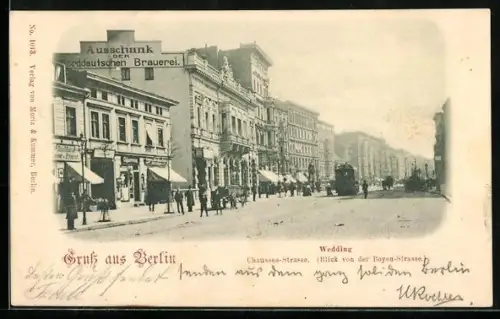 No. 1013. Verlag von Moritz & Kummer, Berlin.
Ausschank
DER
Norddeutschen Brauerei.
Gruß aus Berlin
Wedding
Chaussee-Strasse. (Blick von der Boyen-Strasse.)
senden aus dem ganz soliden Berlin